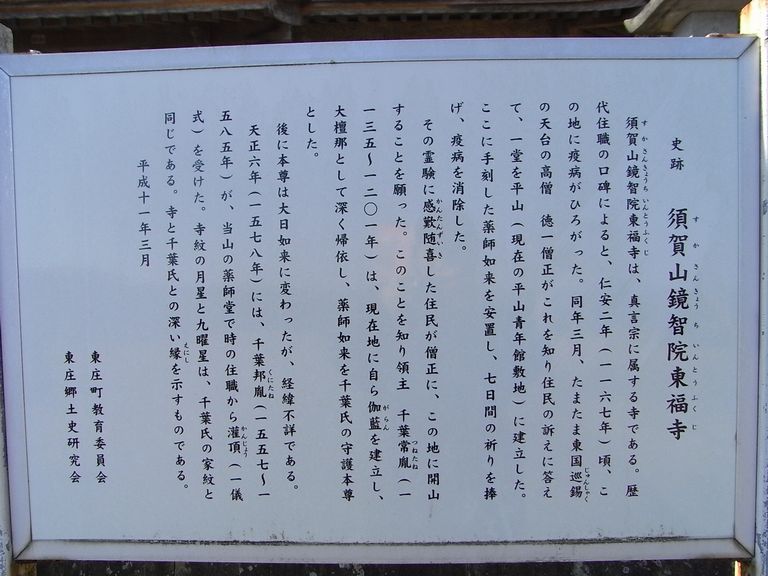 史跡　須賀山鏡智院東福寺
すかさんきょうちいんとうふくじ
須賀山鏡智院東福寺は、真言宗に属する寺である。歴
すかさんきょうちいんとうふくじ
代住職の口碑によると、仁安二年（一一六七年）頃、こ
の地に疫病がひろがった。同年三月、たまたま東国巡錫
じゅんしゃく
の天台の高僧　徳一僧正がこれを知り住民の訴えに答え
て、一堂を平山（現在の平山青年館敷地）に建立した。
ここに手刻した薬師如来を安置し、七日間の祈りを捧
げ、疫病を消除した。
その霊験に感歎随喜した住民が僧正に、この地に開山
かんたんずいき
することを願った。このことを知り領主　千葉常胤（一
つねたね
一三五～一二〇一年）は、現在地に自ら伽藍を建立し、
がらん
大檀那として深く帰依し、薬師如来を千葉氏の守護本尊
とした。
後に本尊は大日如来に変わったが、経緯不詳である。
天正六年（一五七八年）には、千葉邦胤（一五五七～一
くにたね
五八五年）が、当山の薬師堂で時の住職から灌頂（一儀
かんじょう
式）を受けた。寺紋の月星と九曜星は、千葉氏の家紋と
同じである。寺と千葉氏との深い縁を示すものである。
えにし
平成十一年三月
東庄町教育委員会
東庄郷土史研究会